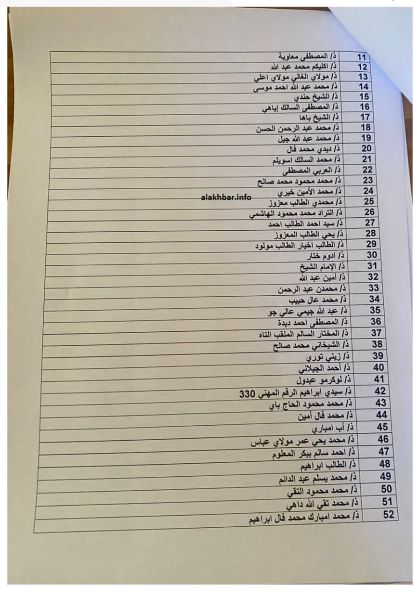 11 ذ/ المصطفى معاوية
12 ذ/ اكليكم محمد عبد الله
13 ذ/ مولاي الغالي مولاي اعلي
14 ذ/ محمد عبد الله احمد موسى
15 ذ/ الشيخ حندي
16 ذ/ المصطفى السالك إباهي
17 ذ/ الشيخ باها
18 ذ/ محمد عبد الرحمن الحسن
19 ذ/ محمد عبد الله جيل
20 ذ/ ديدي محمد فال
21 ذ/ محمد السالك إسويلم
22 ذ/ العربي المصطفى
23 ذ/ محمد محمود محمد صالح
24 ذ/ محمد الأمين خيري
alakhbar.info
25 ذ/ محمدي الطالب معزوز
26 ذ/ التراد محمد محمود الهاشمي
27 ذ/ سيد احمد الطالب احمد
28 ذ/ يحي الطالب المعزوز
29 ذ/ الطالب اخيار الطالب مولود
30 ذ/ ادوم ختار
31 ذ/ الإمام الشيخ
32 ذ/ أمين عبد الله
33 ذ/ محمدن عبد الرحمن
34 ذ/ محمد عال حبيب
35 ذ/ عبد الله جيمي عالي جو
36 ذ/ المصطفى احمد ديدة
37 ذ/ المختار السالم الملقب التاه
38 ذ/ الشيخاني محمد صالح
39 ذ/ زيني توري
40 ذ/ أحمد الجيلاني
41 ذ/ لوكرمو عبدول
42 ذ/ سيدي ابراهيم الرقم المهني 330
43 ذ/ محمد محمود الحاج باي
44 ذ/ محمد فال أمين
45 ذ/ أب امباري
46 ذ/ محمد يحي عمر مولاي عباس
47 ذ/ احمد سالم ببكر المعلوم
48 ذ/ الطالب ابراهيم
49 ذ/ محمد يسلم عبد الدائم
50 ذ/ محمد محمود التقي
51 ذ/ محمد تقي الله داهي
52 ذ/ محمد امبارك محمد فال ابراهيم